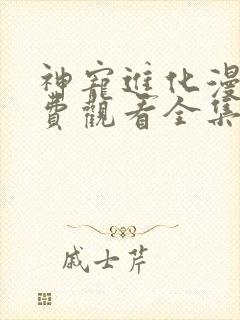 神寵進化漫
費觀看全集
戚士芹